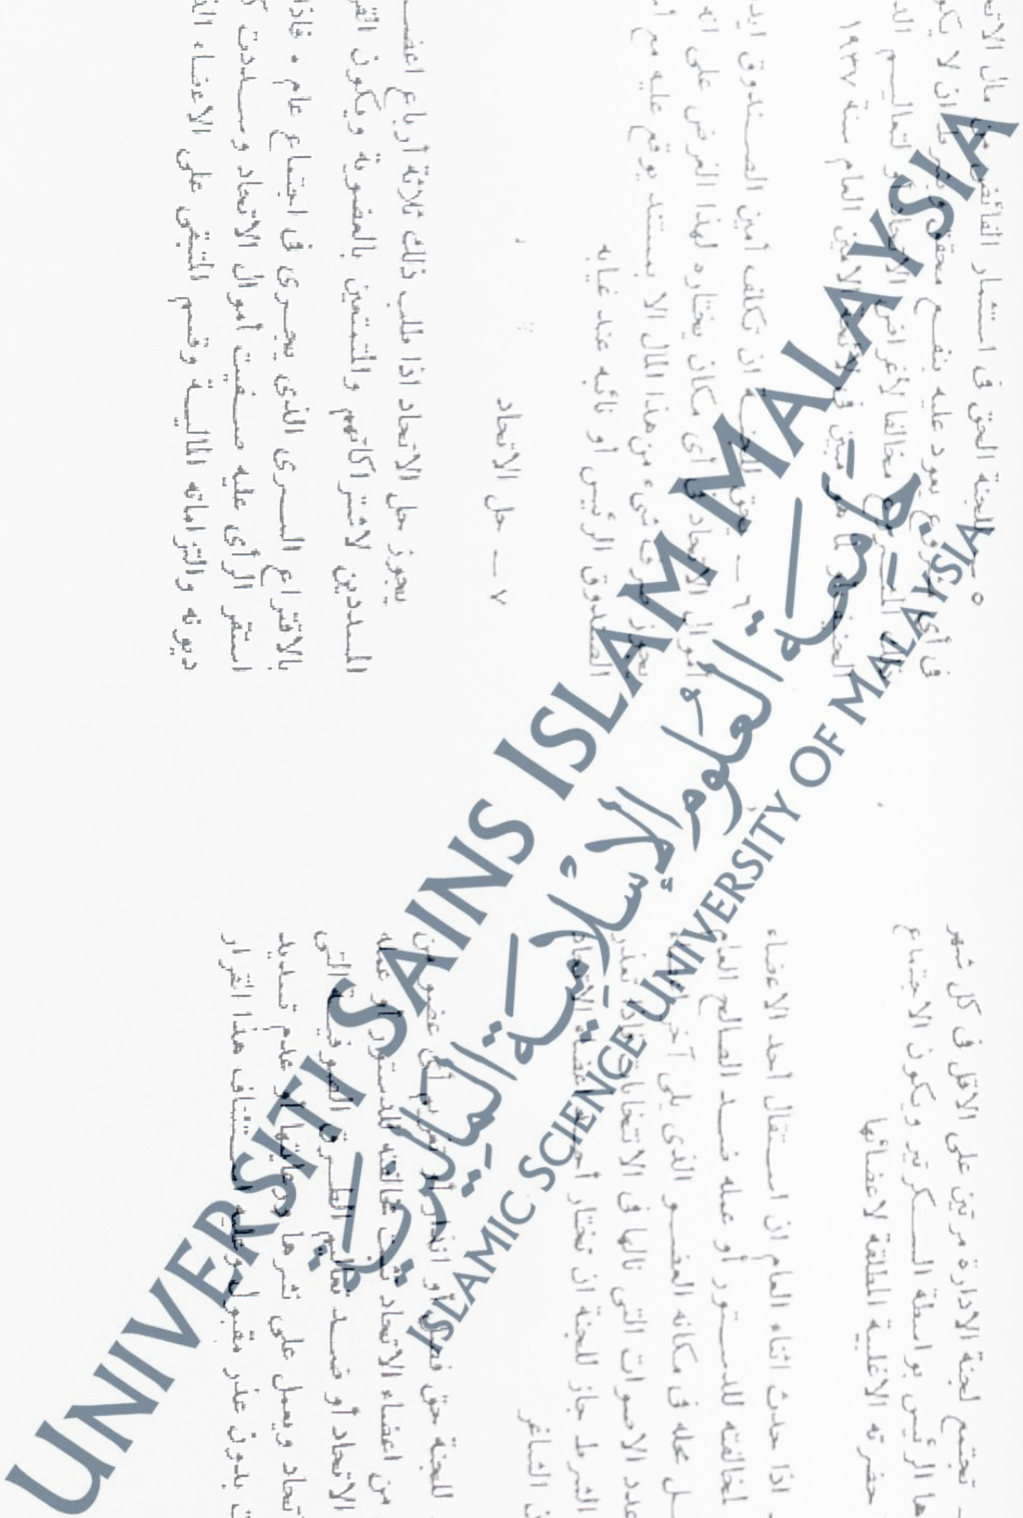 تجتمع لجنة الادارة مرتين على الاقل فى كل شهر
الرئيس بواسطة السكرتير ويكون الاجتماع
حضرته الاغلبية المطلقة لاعضائها
اذا حدث اثناء العام ان استقال أحد الاعضاء
لمخالفته للدستور أو عمله ضد الصالح العام
محله فى مكانه العضو الذى يلى آخر
عدد الاصوات التى نالها فى الانتخابات فاذا تعذر
الشرط جاز للجنة ان تختار أحد أعضاء الاتحاد
الشاغر
للجنة حق فصل أو انذار أو تغريم أى عضو
من اعضاء الاتحاد تثبت مخالفته للدستور أو عمله
الاتحاد أو ضد تعاليم الطرق الصوفية التى
ويعمل على نشرها أو عدم تسديد
بدون عذر مقبول وعليه استئناف هذا القرار
٥ — للجنة الحق فى استثمار الفائض من مال
فى أى مشروع يعود عليه بنفع محقق بشرط ان لا
المشروع مخالفا لأغراض الاتحاد أو لتعاليم
العام سنة ١٩٣٧
٦ — يحق للجنة ان تكلف أمين الصندوق
أموال الاتحاد فى أى مكان يختاره لهذا الغرض على انه
يجوز صرف شىء من هذا المال الا بمستند يوقع عليه مع
الصندوق الرئيس أو نائبه عند غيابه
٧ — حل الاتحاد
يجوز حل الاتحاد اذا طلب ذلك ثلاثة أرباع
المسددين لاشتراكاتهم والمتمتعين بالعضوية ويكون
بالاقتراع السرى الذى يجرى فى اجتماع عام ٠ فاذا
استقر الرأى عليه صفيت أموال الاتحاد وسددت
ديونه والتزاماته المالية وقسم المتبقى على الاعضاء
UNIVERSITI SAINS ISLAM MALAYSIA
جامعة العلوم الإسلامية الماليزية
ISLAMIC SCIENCE UNIVERSITY OF MALAYSIA